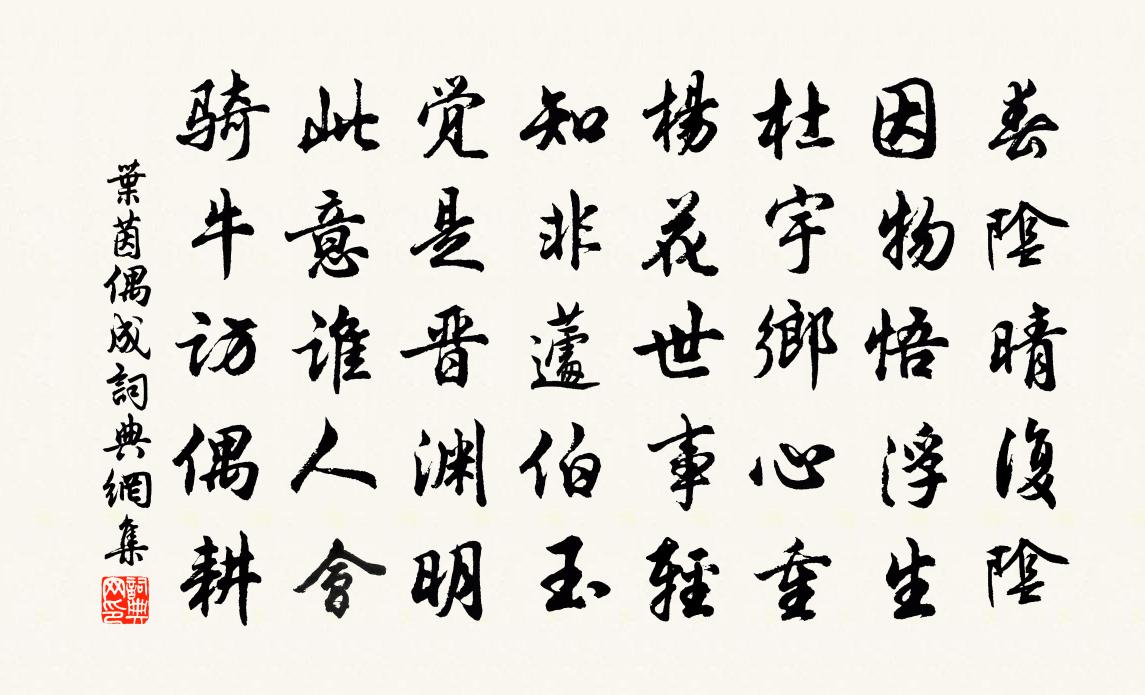 春陰晴復陰
因物悟浮生
杜宇鄉心重
楊花世事輕
知非蘧伯玉
覚是晋渊明
此意誰人會
騎牛訪偶耕
葉茵偶成詞典網集
詞典網印